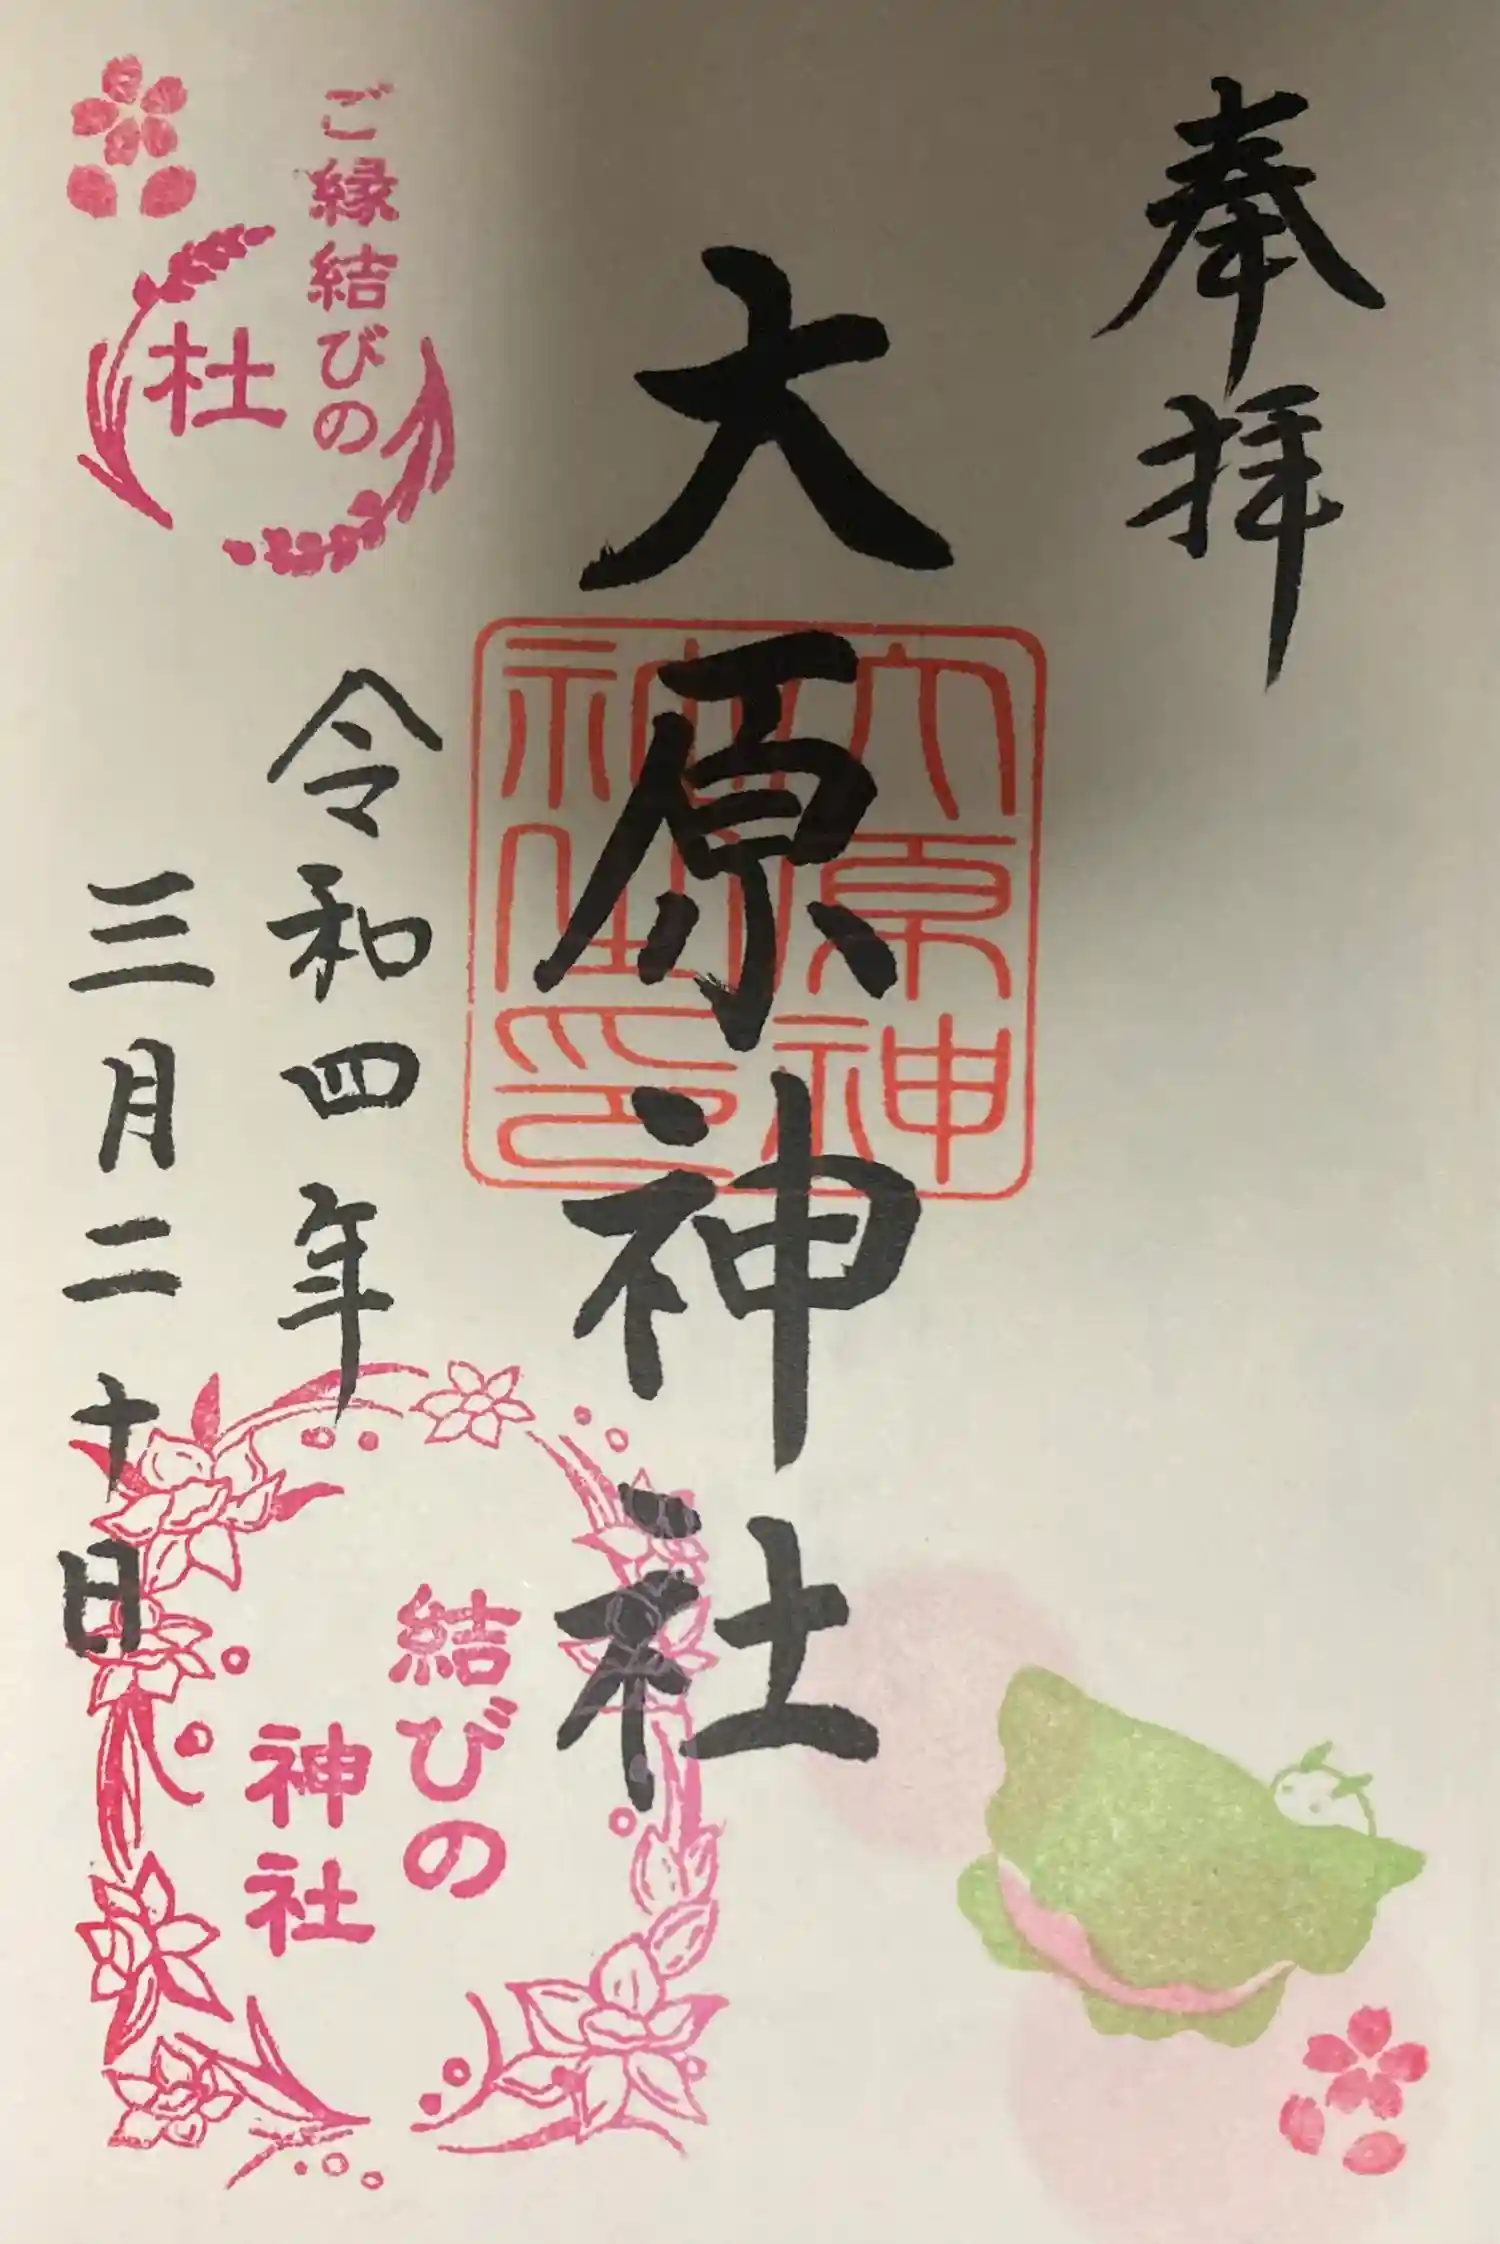 奉拝
大原神社
大原神
社印
ご縁結びの
杜
令和四年
三月二十日
結びの
神社